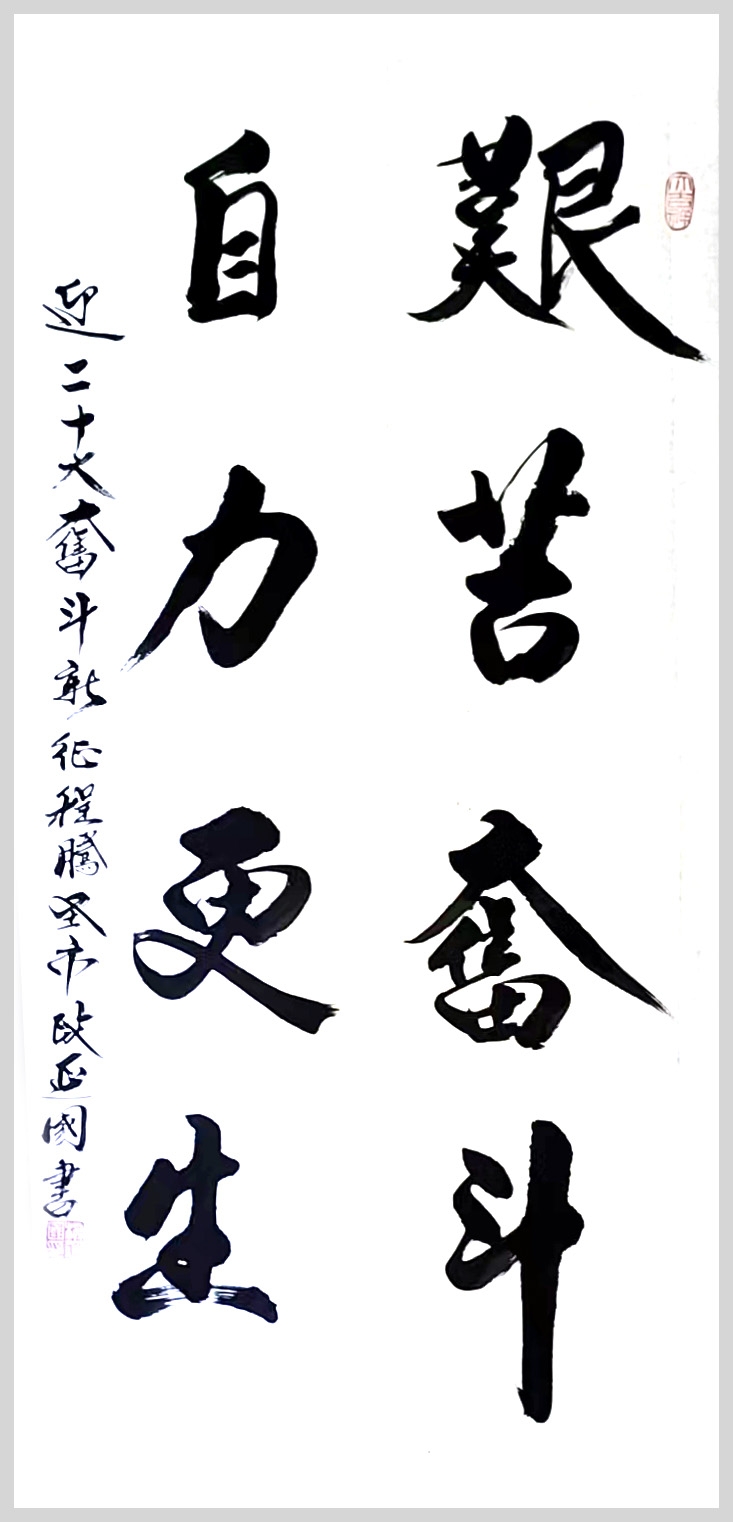 艱苦奮斗
自力更生
迎二十大奮斗新征程騰圣市政正國書